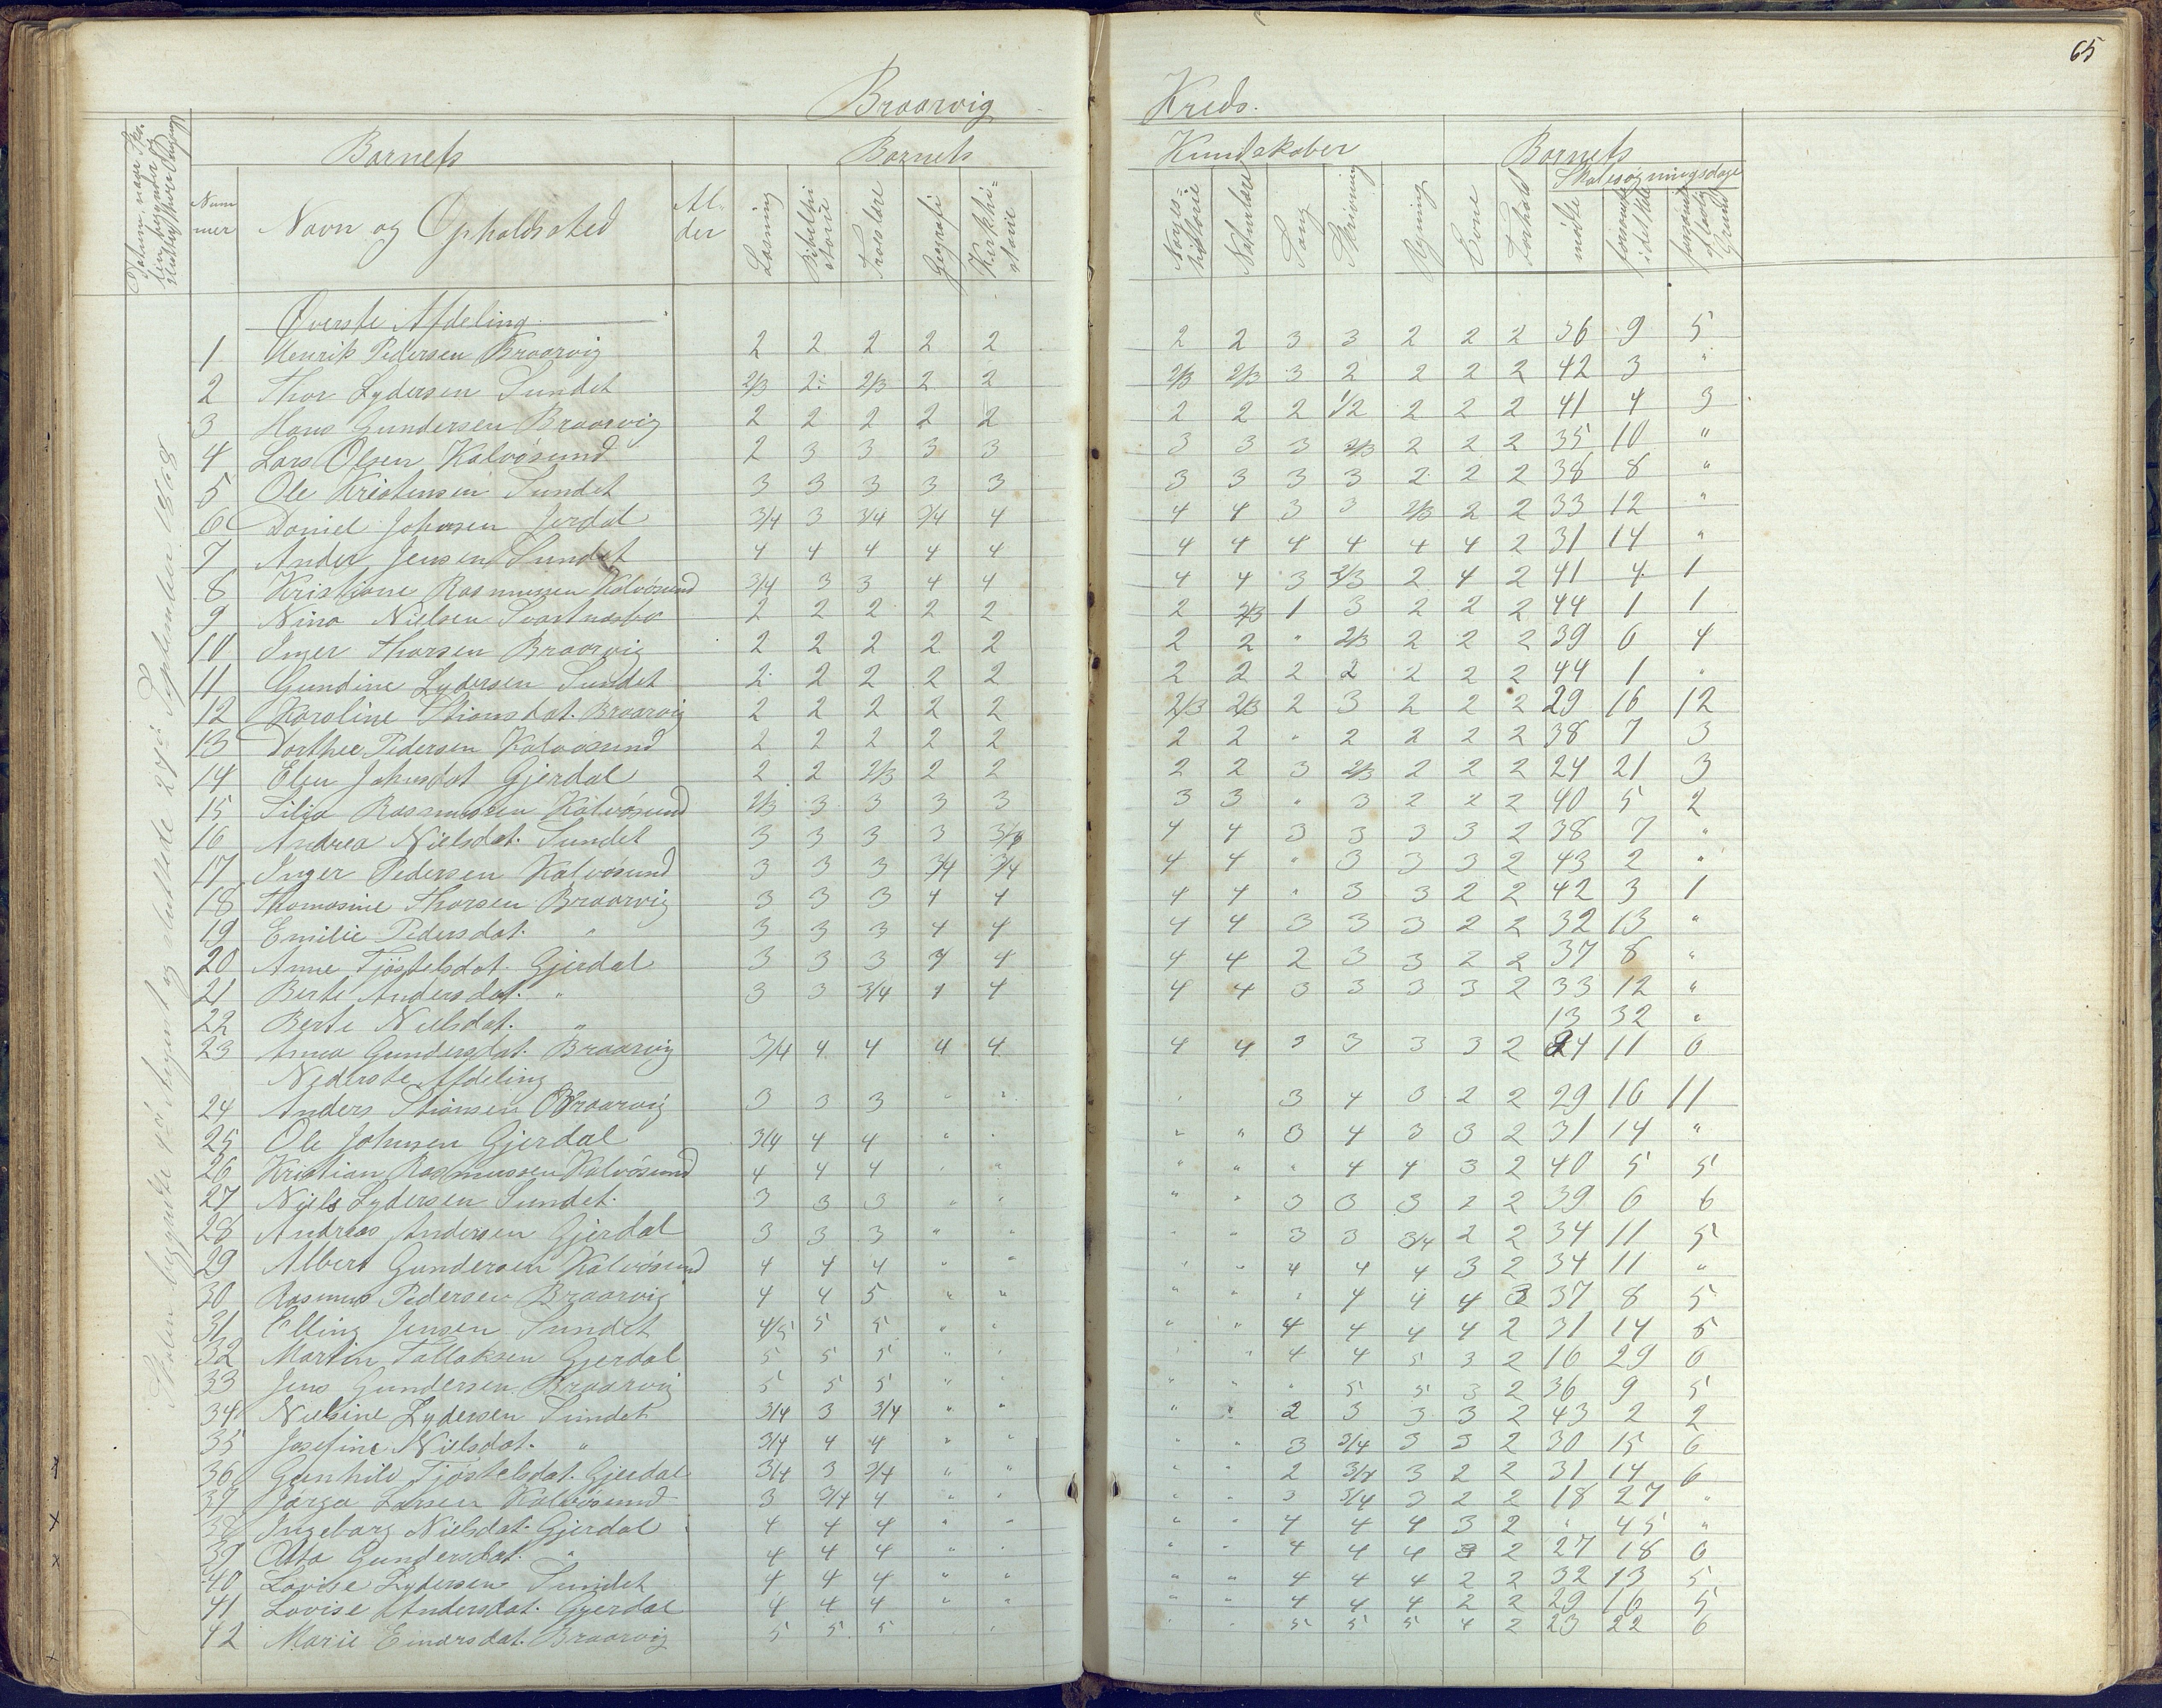 65
Braarvig Kreds.
Barnets Barnets Kundskaber Barnets
Skolesøgningsdage
Num
mer Navn og Opholdssted Al-
der Læsning Bibelhi
storie Troeslære Geografi Kirkehi=
storie Norges=
historie Naturlære Sang Skrivning Regning Evne Forhold mødte forsømte
i det Hele forsømte
af lovlig
Grund
Skolen begyndte 4de August og sluttede 27de September 1868
Øverste Afdeling
1 Henrik Pedersen Braarvig 2 2 2 2 2 2 2 3 3 2 2 2 36 9 5
2 Thor Lydersen Sundet 2/3 2 2/3 2 2 2/3 2/3 3 2 2 2 2 42 3 "
3 Hans Gundersen Braarvig 2 2 2 2 2 2 2 2 1/2 2 2 2 41 4 3
4 Lars Olsen Kalvøsund 2 3 3 3 3 3 3 3 2/3 2 2 2 35 10 "
5 Ole Kristensen Sundet 3 3 3 3 3 3 3 3 3 2 2 2 38 8 "
6 Daniel Johnsen Jerdal 3/4 3 3/4 3/4 4 4 4 3 3 2/3 2 2 33 12 "
7 Ander Jensen Sundet 4 4 4 4 4 4 4 4 4 4 4 2 31 14 "
8 Kristiane Rasmussen Kalvøsund 3/4 3 3 4 4 4 4 3 2/3 2 4 2 41 4 1
9 Nina Nielsen Svartnæsbo 2 2 2 2 2 2 2/3 1 3 2 2 2 44 1 1
10 Inger Thorsen Braarvig 2 2 2 2 2 2 2 " 2/3 2 2 2 39 6 4
11 Gundine Lydersen Sundet 2 2 2 2 2 2 2 2 2 2 2 2 44 1 "
12 Karoline Stiansdat. Braarvig 2 2 2 2 2 2/3 2/3 2 3 2 2 2 29 16 12
13 Dorthee Pedersen Kalvøsund 2 2 2 2 2 2 2 " 2 2 2 2 38 7 3
14 Elen Johnsdat Gjerdal 2 2 2/3 2 2 2 2 3 2/3 2 2 2 24 21 3
15 Silia Rasmussen Kalvøsund 2/3 3 3 3 3 3 3 " 3 2 2 2 40 5 2
16 Andrea Nielsdat. Sundet 3 3 3 3 3/4 4 4 3 3 3 3 2 38 7 "
17 Inger Pedersen Kalvøsund 3 3 3 3/4 3/4 4 4 " 3 3 3 2 43 2 "
18 Thomasine Thorsen Braarvig 3 3 3 4 4 4 4 " 3 3 2 2 42 3 1
19 Emilie Pedersdat. " 3 3 3 4 4 4 4 3 3 3 2 2 32 13 "
20 Anne Tjøstelsdat. Gjerdal 3 3 3 4 4 4 4 2 3 3 2 2 37 8 "
21 Berte Andersdat. " 3 3 3/4 4 4 4 4 3 3 3 3 2 33 12 "
22 Berte Nielsdat. " 13 32 "
23 Anna Gundersdat. Braarvig 3/4 4 4 4 4 4 4 3 3 3 3 2 24 11 6
Nederste Afdeling
24 Anders Stiansen Braarvig 3 3 3 " " " 3 4 3 2 2 29 16 11
25 Ole Johnsen Gjerdal 3/4 4 4 " " " " 3 4 3 3 2 31 14 "
26 Kristian Rasmussen Kalvøsund 4 4 4 " " " " " 4 4 3 2 40 5 5
27 Niels Lydersen Sundet. 3 3 3 " " " " 3 3 3 2 2 39 6 6
28 Andreas Andersen Gjerdal 3 3 3 " " " " 3 3 3/4 2 2 34 11 5
29 Albert Gundersen Kalvøsund 4 4 4 " " " " 4 4 4 3 2 34 11 "
30 Rasmus Pedersen Braarvig 4 4 5 " " " " " 4 4 4 3 37 8 5
31 Elling Jensen Sundet 4/5 5 5 " " " " 4 4 4 4 2 31 14 8
32 Martin Tallaksen Gjerdal 5 5 5 " " " " 4 4 5 3 2 16 29 6
33 Jens Gundersen Braarvig 5 5 5 " " " " " 5 5 3 2 36 9 5
34 Nielsine Lydersen Sundet 3/4 3 3/4 " " " " 2 3 3 3 2 43 2 2
35 Josefine Nielsdat. " 3/4 4 4 " " " " 3 3/4 3 3 2 30 15 6
36 Gunhild Tjøstelsdat. Gjerdal 3/4 3 3/4 " " " " 2 3/4 3 2 2 31 14 6
37 Jørga Larsen Kalvøsund 3 3/4 4 " " " " 3 3/4 3 2 2 18 27 "
38 Ingeborg Nielsdat. Gjerdal 4 4 4 " " " " 4 4 4 3 2 " 45 "
39 Alta Gundersdat. " 4 4 4 " " " " 4 4 4 3 2 27 18 6
40 Lovise Lydersen Sundet 4 4 4 " " " " 4 4 4 2 2 32 13 5
41 Lovise Andersdat. Gjerdal 4 4 4 " " " " 4 4 4 2 2 29 16 5
42 Marie Einersdat. Braarvig 5 5 5 " " " " 5 5 5 4 2 23 22 6